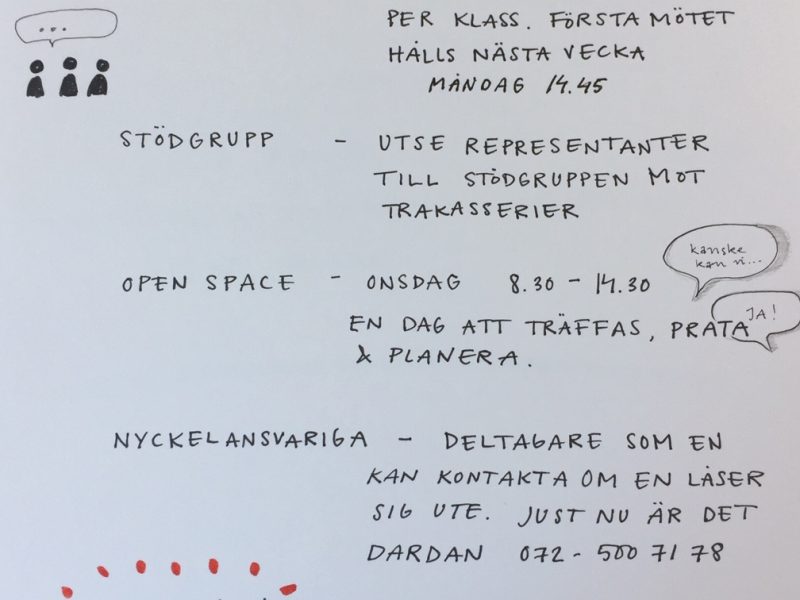 ...
PER KLASS. FÖRSTA MÖTET
HÅLLS NÄSTA VECKA
MÅNDAG 14.45
STÖDGRUPP - UTSE REPRESENTANTER
TILL STÖDGRUPPEN MOT
TRAKASSERIER
kanske
kan vi...
OPEN SPACE - ONSDAG 8.30 - 14.30
JA!
EN DAG ATT TRÄFFAS, PRATA
& PLANERA.
NYCKELANSVARIGA - DELTAGARE SOM EN
KAN KONTAKTA OM EN LÅSER
SIG UTE. JUST NU ÄR DET
DARDAN 072-500 71 78